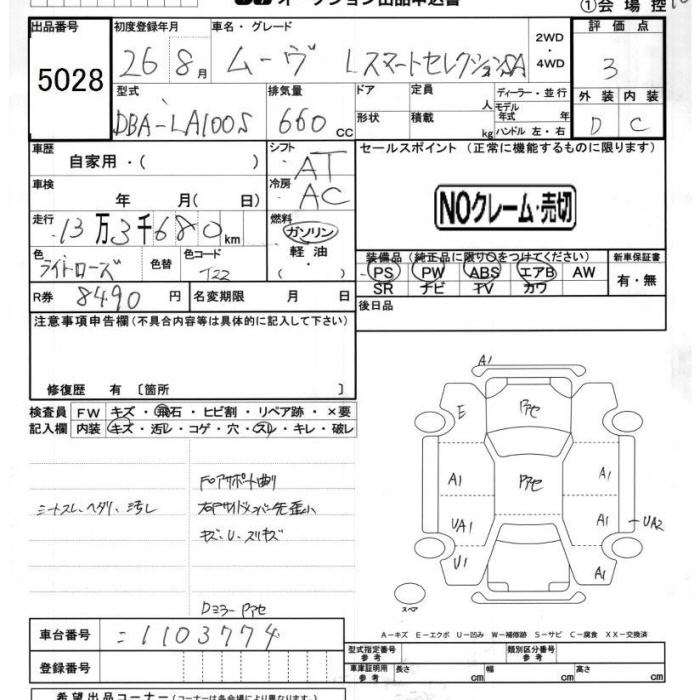 オークション出品申込書
①会場控
出品番号 初度登録年月 車名・グレード 2WD ・ 4WD 評価点
5028 26 8月 ムーヴ LスマートセレクションSA 3
型式 排気量 ドア 定員 人 ディーラー・並行 外装 内装
DBA-LA100S 660 CC 形状 積載 kg モデル年式 年 ハンドル 左・右 D C
車歴 自家用・( ) シフト AT セールスポイント (正常に機能するものに限ります)
車検 年 月( 日) 冷房 AC
NOクレーム・売切
走行 13万3千680km 燃料 ガソリン 軽油 ・( )
色 ライトローズ 色替 色コード T22
装備品 (純正品に限り○をつけてください) 新車保証書
PS PW ABS エアB AW 有・無
SR ナビ TV カワ
R券 8490円 名変期限 月 日 後日品
注意事項申告欄(不具合内容等は具体的に記入して下さい)
修復歴 有 〔箇所 〕
検査員 FW キズ・飛石・ヒビ割・リペア跡・×要
記入欄 内装 キズ・汚レ・コゲ・穴・スレ・キレ・破レ
シートスレ、ヘタリ、汚レ
Fロアサポート曲り
右Fサイドメンバー先歪小
キズ、U、スリキズ
Dミラーアセ
A1
E アセ
A1 アセ A1
UA1 A1 UA2
U1 A1
スペア
A−キズ E−エクボ U−凹み W−補修跡 S−サビ C−腐食 XX−交換済
車台番号 -1103774
型式指定番号 参考 類別区分番号 参考
登録番号
車庫証明用 参考 長さ cm 幅 cm 高さ cm
希望出品コーナー(コーナーは各会場により異なります)